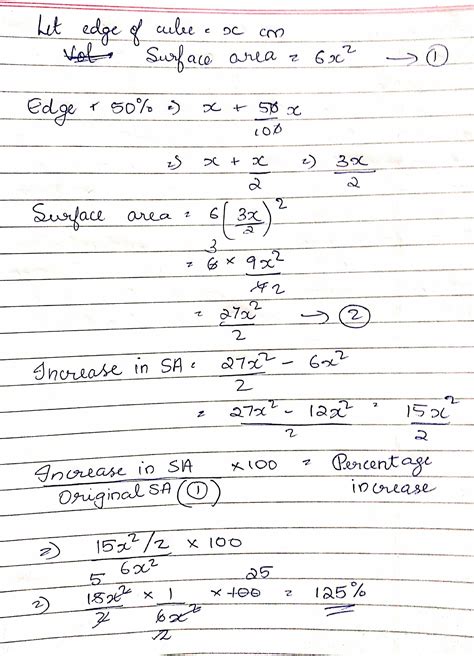 Let edge of cube = x cm
Vol Surface area = 6x² → ①
Edge + 50% ⇒ x + 50/100 x
⇒ x + x/2 ⇒ 3x/2
Surface area = 6(3x/2)²
= 6 3 × 9x²/4 2
= 27x²/2 → ②
Increase in SA = 27x²/2 - 6x²
= 27x² - 12x²/2 = 15x²/2
Increase in SA/Original SA (①) × 100 = Percentage increase
⇒ 15x²/2/6x² × 100
⇒ 5 15x²/2 × 1/6x² 2 × 100 25 = 125%